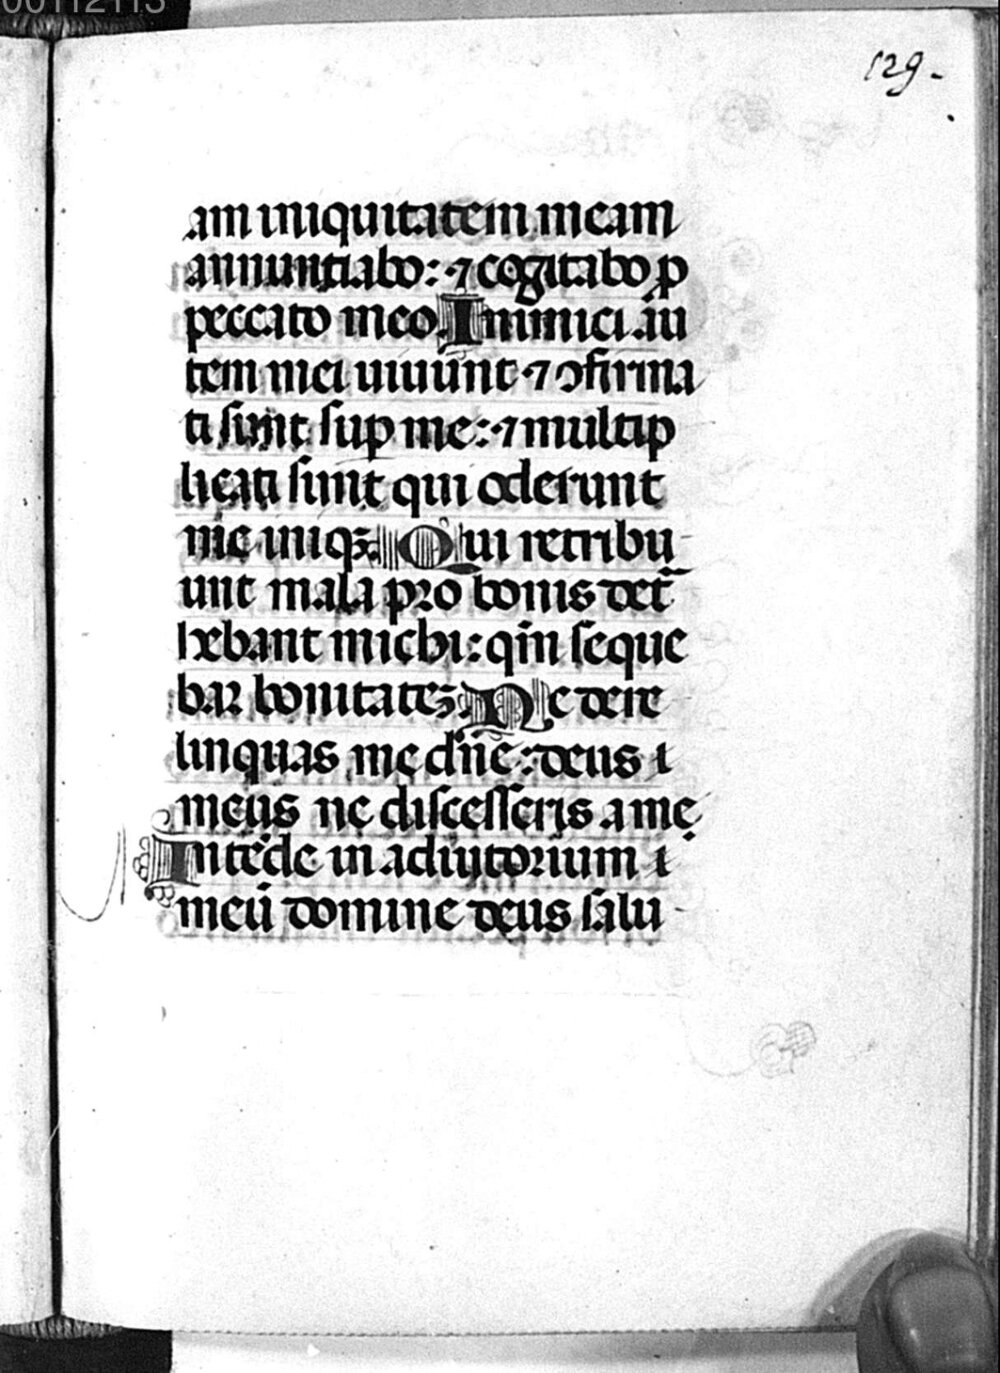 00112113
129.
am iniquitatem meam
annuntiabo: ⁊ cogitabo ꝓ
peccato meo. Inimici au
tem mei uiuunt ⁊ ↄfirma
ti sunt sup me: ⁊ multip
licati sunt qui oderunt
me iniqꝫ. Qui retribu
unt mala pro bonis det̃
hebant michi: qm̄ seque
bar bonitatēꝫ. Ne dere
linquas me dn̄e: deus i
meus ne discesseris a me.
Intēde in adiutorium i
meū domine deus salu